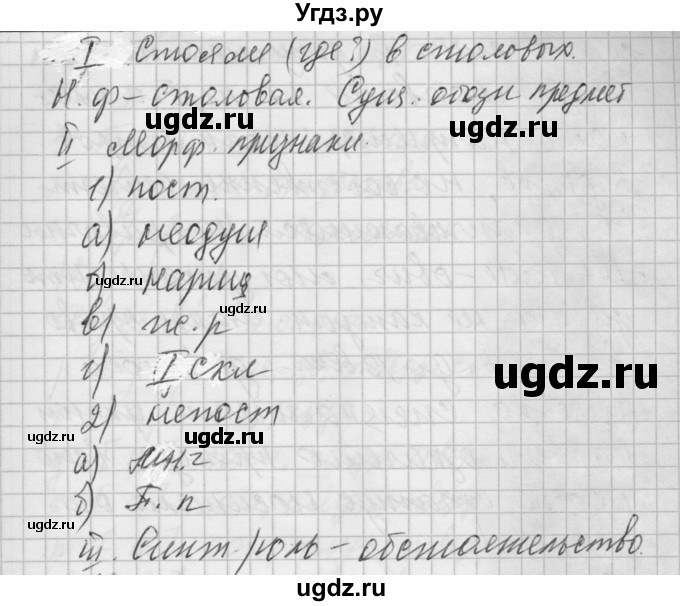 Угдз.ру
I Стояли (где?) в столовых.
Н. ф – столовая. Сущ. обозн предмет
ugdz.ru ugdz.ru
II Морф. признаки.
1) пост.
а) неодуш
ugdz.ru
б) нариц
ugdz.ru
в) ж. р
ugdz.ru
г) I скл
ugdz.ru
2) непост
ugdz.ru ugdz.ru
а) мн. ч
б) П. п
ugdz.ru
III. Синт. роль – обстоятельство.
ugdz.ru ugdz.ru